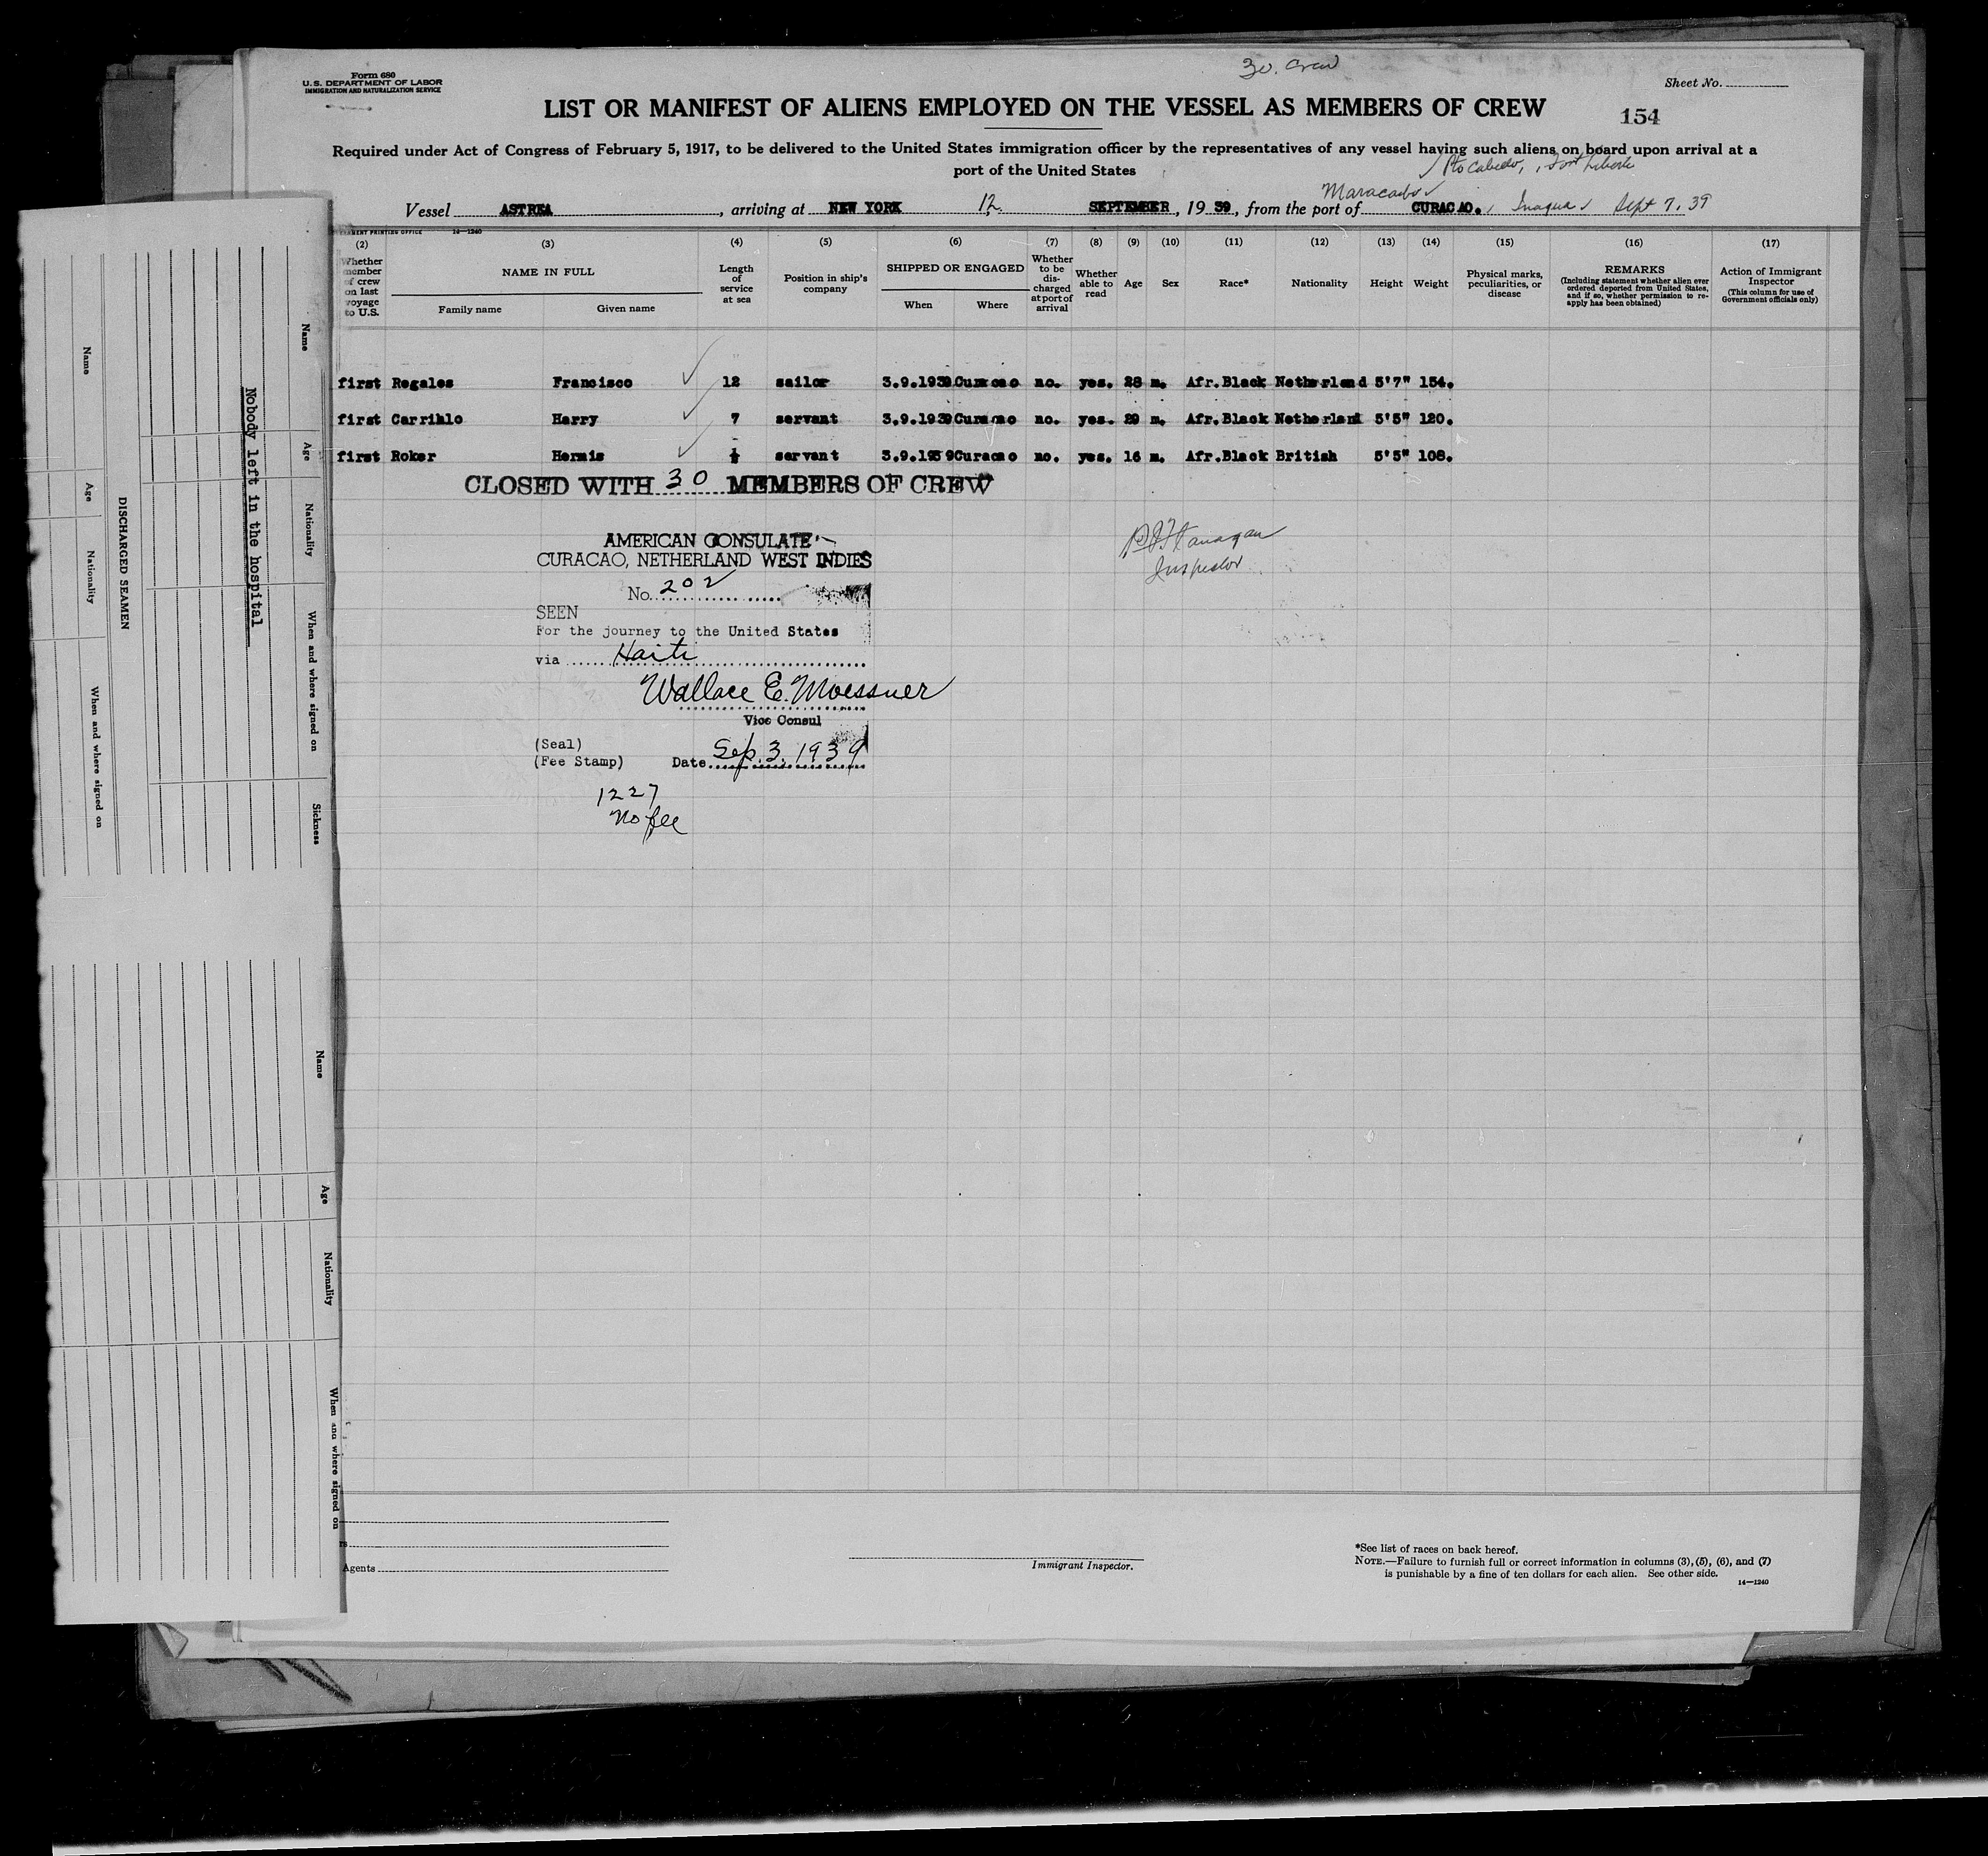 Form 680
U. S. DEPARTMENT OF LABOR
IMMIGRATION AND NATURALIZATION SERVICE
30. Crew
Sheet No.
LIST OR MANIFEST OF ALIENS EMPLOYED ON THE VESSEL AS MEMBERS OF CREW
154
Required under Act of Congress of February 5, 1917, to be delivered to the United States immigration officer by the representatives of any vessel having such aliens on board upon arrival at a
port of the United States
Pto Cabello, Fort Liberte
Maracaibo
Vessel ASTREA, arriving at NEW YORK 12. SEPTEMBER, 19 39, from the port of CURACAO. Inagua Sept 7. 39
14—1240
(2) (3) (4) (5) (6) (7) (8) (9) (10) (11) (12) (13) (14) (15) (16) (17)
Whether member of crew on last voyage to U.S.
NAME IN FULL
Family name
Given name
Length of service at sea
Position in ship's company
SHIPPED OR ENGAGED
When
Where
Whether to be discharged at port of arrival
Whether able to read
Age
Sex
Race*
Nationality
Height
Weight
Physical marks, peculiarities, or disease
REMARKS
(Including statement whether alien ever ordered deported from United States, and if so, whether permission to reapply has been obtained)
Action of Immigrant Inspector
(This column for use of Government officials only)
first Regales Francisco 12 sailor 3.9.1939 Curacao no. yes. 28 m. Afr.Black Netherland 5'7" 154.
first Carrillo Harry 7 servant 3.9.1939 Curacao no. yes. 29 m. Afr.Black Netherland 5'5" 120.
first Roker Hermis servant 3.9.1939 Curacao no. yes. 16 m. Afr.Black British 5'5" 108.
CLOSED WITH 30 MEMBERS OF CREW
AMERICAN CONSULATE
CURACAO, NETHERLAND WEST INDIES
No. 202
SEEN
For the journey to the United States
via Haiti
Wallace E. Moessner
Vice Consul
(Seal)
(Fee Stamp) Date Sep. 3. 1939
1227
No fee
Flanagan
Inspector
Nobody left in the hospital
DISCHARGED SEAMEN
Name
Age
Nationality
When and where signed on
Name
Age
Nationality
When and where signed on
Sickness
Name
Age
Nationality
When and where signed on
Agents
Immigrant Inspector.
*See list of races on back hereof.
NOTE.—Failure to furnish full or correct information in columns (3), (5), (6), and (7)
is punishable by a fine of ten dollars for each alien. See other side.
14—1240